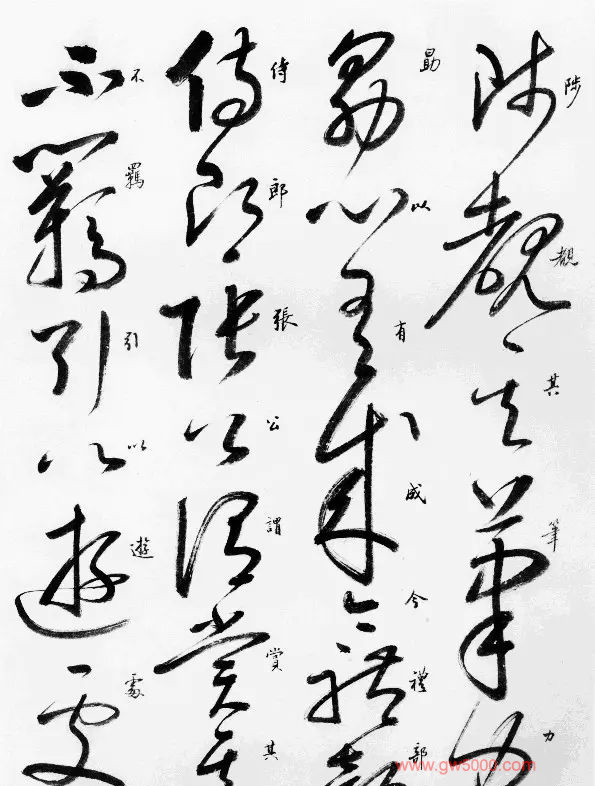 陟覩其筆力
勗以有成今禮部
侍郎張公謂賞其
不羈引以遊處
www.gw5000.com